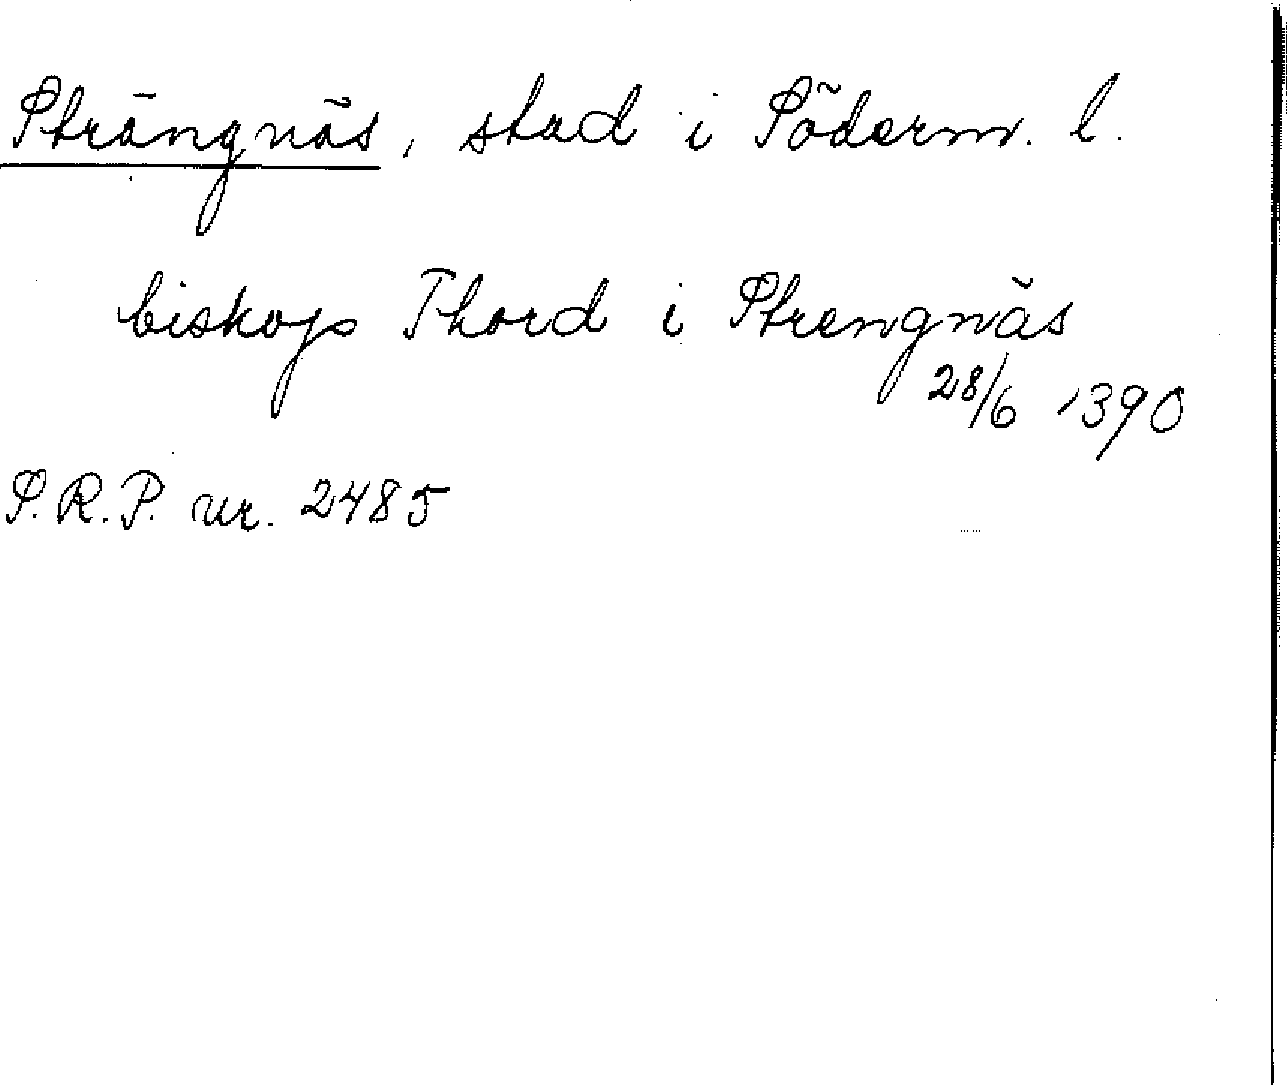 Strängnäs, stad i Söderm. l.
biskop Thord i Strengnäs
28/6 1390
S.R.P. nr. 2485